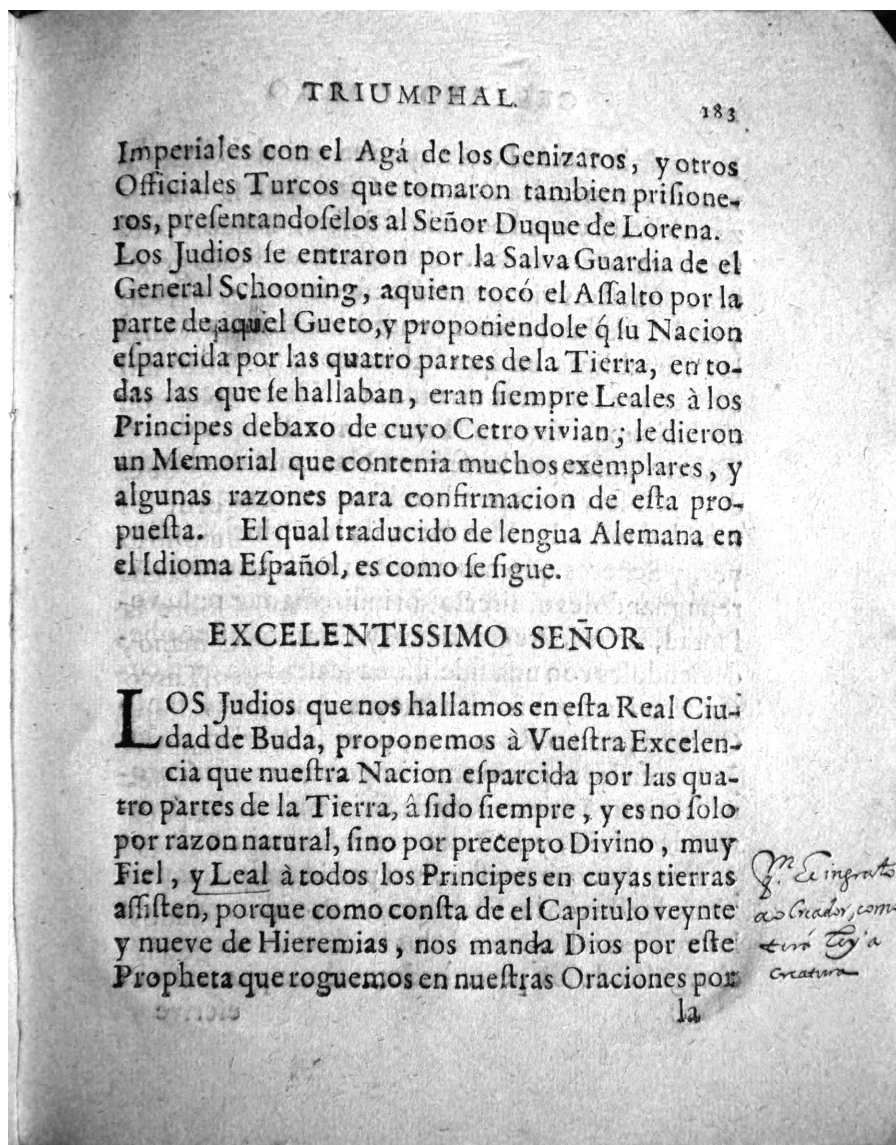 TRIUMPHAL.
183
Imperiales con el Agá de los Genizaros, y otros
Officiales Turcos que tomaron tambien priſione-
ros, preſentandoſelos al Señor Duque de Lorena.
Los Judios ſe entraron por la Salva Guardia de el
General Schooning, aquien tocó el Aſſalto por la
parte de aquel Gueto, y proponiendole q́ ſu Nacion
eſparcida por las quatro partes de la Tierra, en to-
das las que ſe hallaban, eran ſiempre Leales à los
Principes debaxo de cuyo Cetro vivian; le dieron
un Memorial que contenia muchos exemplares, y
algunas razones para confirmacion de eſta pro-
pueſta. El qual traducido de lengua Alemana en
el Idioma Eſpañol, es como ſe ſigue.
EXCELENTISSIMO SEÑOR
LOS Judios que nos hallamos en eſta Real Ciu-
dad de Buda, proponemos à Vueſtra Excelen-
cia que nueſtra Nacion eſparcida por las qua-
tro partes de la Tierra, â ſido ſiempre, y es no ſolo
por razon natural, ſino por precepto Divino, muy
Fiel, y Leal à todos los Principes en cuyas tierras
aſſiſten, porque como conſta de el Capitulo veynte
y nueve de Hieremias, nos manda Dios por eſte
Propheta que roguemos en nueſtras Oraciones por
la
q.^m ingrato
ao Creador, com
a
creatura